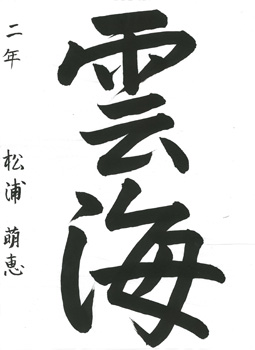 雲海
二年 松浦萌恵